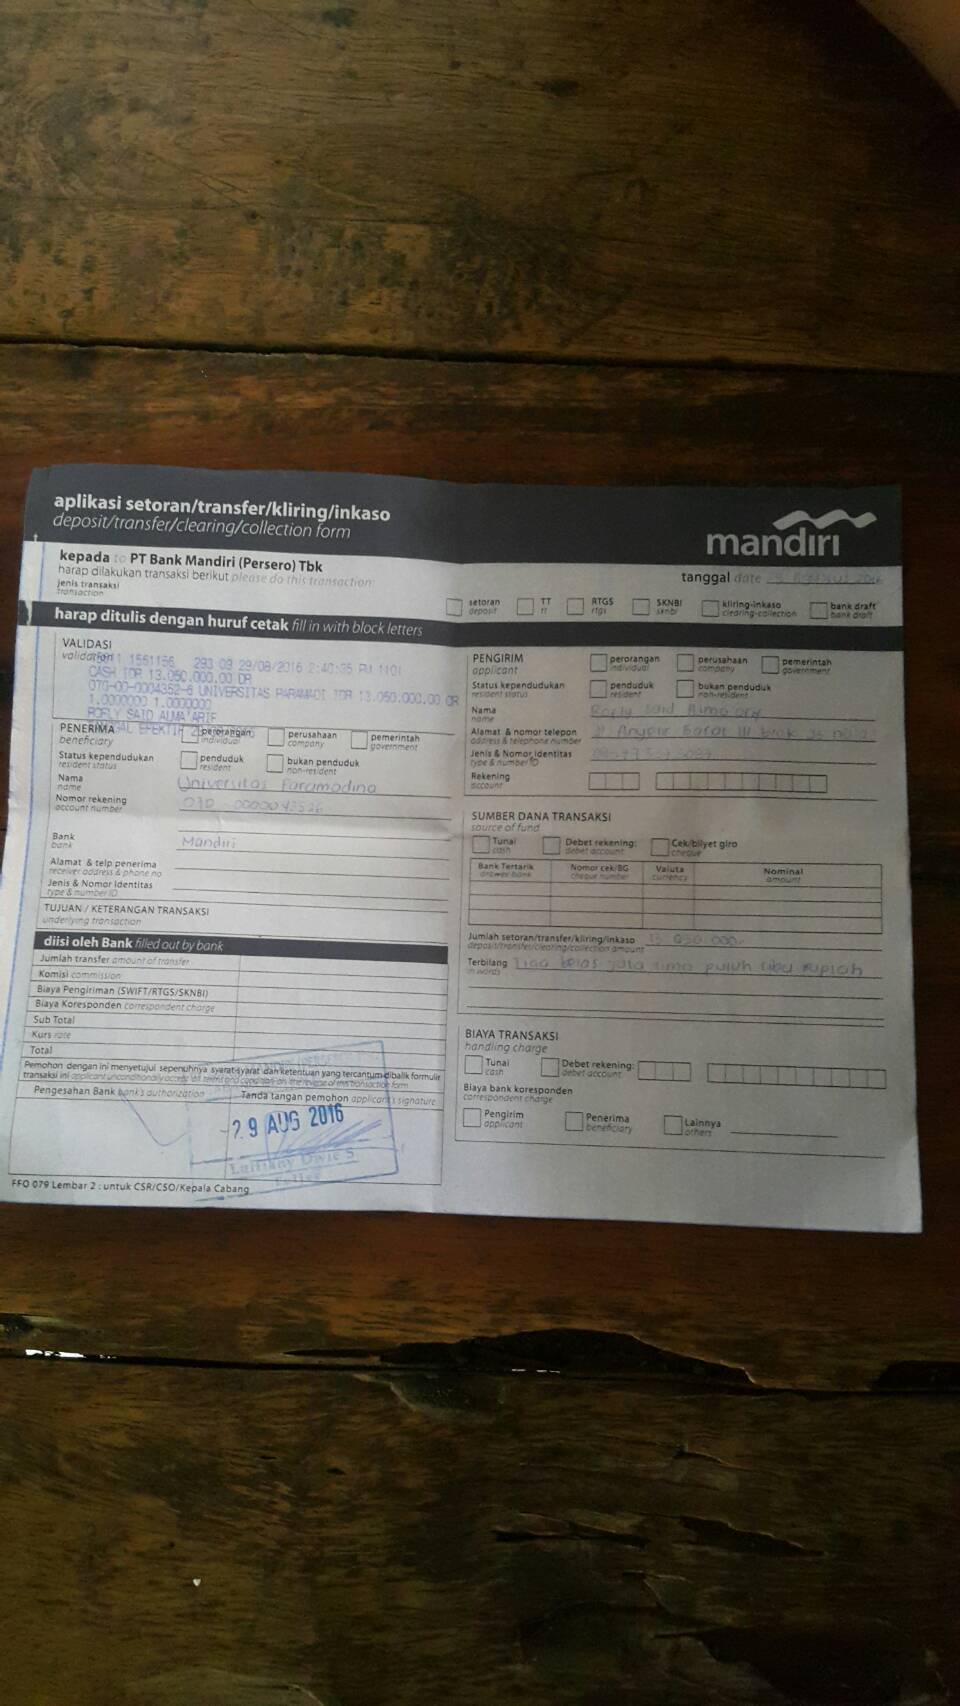 aplikasi setoran/transfer/kliring/inkaso
deposit/transfer/clearing/collection form
mandiri
kepada to PT Bank Mandiri (Persero) Tbk
harap dilakukan transaksi berikut please do this transaction:
tanggal date Agustus 2016
jenis transaksi
transaction
setoran
deposit
TT
tt
RTGS
rtgs
SKNBI
sknbi
kliring-inkaso
clearing-collection
bank draft
bank draft
harap ditulis dengan huruf cetak fill in with block letters
VALIDASI
validation
1561156 293 09 29/08/2016 2:40:35 PM 1101
CASH IDR 13.050.000.00 DR
070-00-0004352-6 UNIVERSITAS PARAMADI IDR 13.050.000.00 CR
1.0000000 1.0000000
ROFLY SAID ALMA'ARIF
TANGGAL EFEKTIF
PENERIMA
beneficiary
perorangan
individual
perusahaan
company
pemerintah
government
Status kependudukan
resident status
penduduk
resident
bukan penduduk
non-resident
Nama
name
Universitas Paramadina
Nomor rekening
account number
070 - 0000043526
Bank
bank
Mandiri
Alamat & telp penerima
receiver address & phone no
Jenis & Nomor Identitas
type & number ID
TUJUAN / KETERANGAN TRANSAKSI
underlying transaction
diisi oleh Bank filled out by bank
Jumlah transfer amount of transfer
Komisi commission
Biaya Pengiriman (SWIFT/RTGS/SKNBI)
Biaya Koresponden correspondent charge
Sub Total
Kurs rate
Total
Pemohon dengan ini menyetujui sepenuhnya syarat-syarat dan ketentuan yang tercantum dibalik formulir
transaksi ini applicant unconditionally accept all terms and condition on the reverse of this transaction form
Pengesahan Bank bank's authorization
Tanda tangan pemohon applicant's signature
29 AUG 2016
Teller
FFO 079 Lembar 2 : untuk CSR/CSO/Kepala Cabang
PENGIRIM
applicant
perorangan
individual
perusahaan
company
pemerintah
government
Status kependudukan
resident status
penduduk
resident
bukan penduduk
non-resident
Nama
name
Rofly Said Alma'arif
Alamat & nomor telepon
address & telephone number
Jl Anyelir Barat III blok
Jenis & Nomor Identitas
type & number ID
Rekening
account
SUMBER DANA TRANSAKSI
source of fund
Tunai
cash
Debet rekening:
debet account
Cek/bilyet giro
cheque
Bank Tertarik
drawer bank
Nomor cek/BG
cheque number
Valuta
currency
Nominal
amount
Jumlah setoran/transfer/kliring/inkaso 13.050.000,-
deposit/transfer/clearing/collection amount
Terbilang Tiga belas juta lima puluh ribu rupiah
in words
BIAYA TRANSAKSI
handling charge
Tunai
cash
Debet rekening:
debet account
Biaya bank koresponden
correspondent charge
Pengirim
applicant
Penerima
beneficiary
Lainnya
others